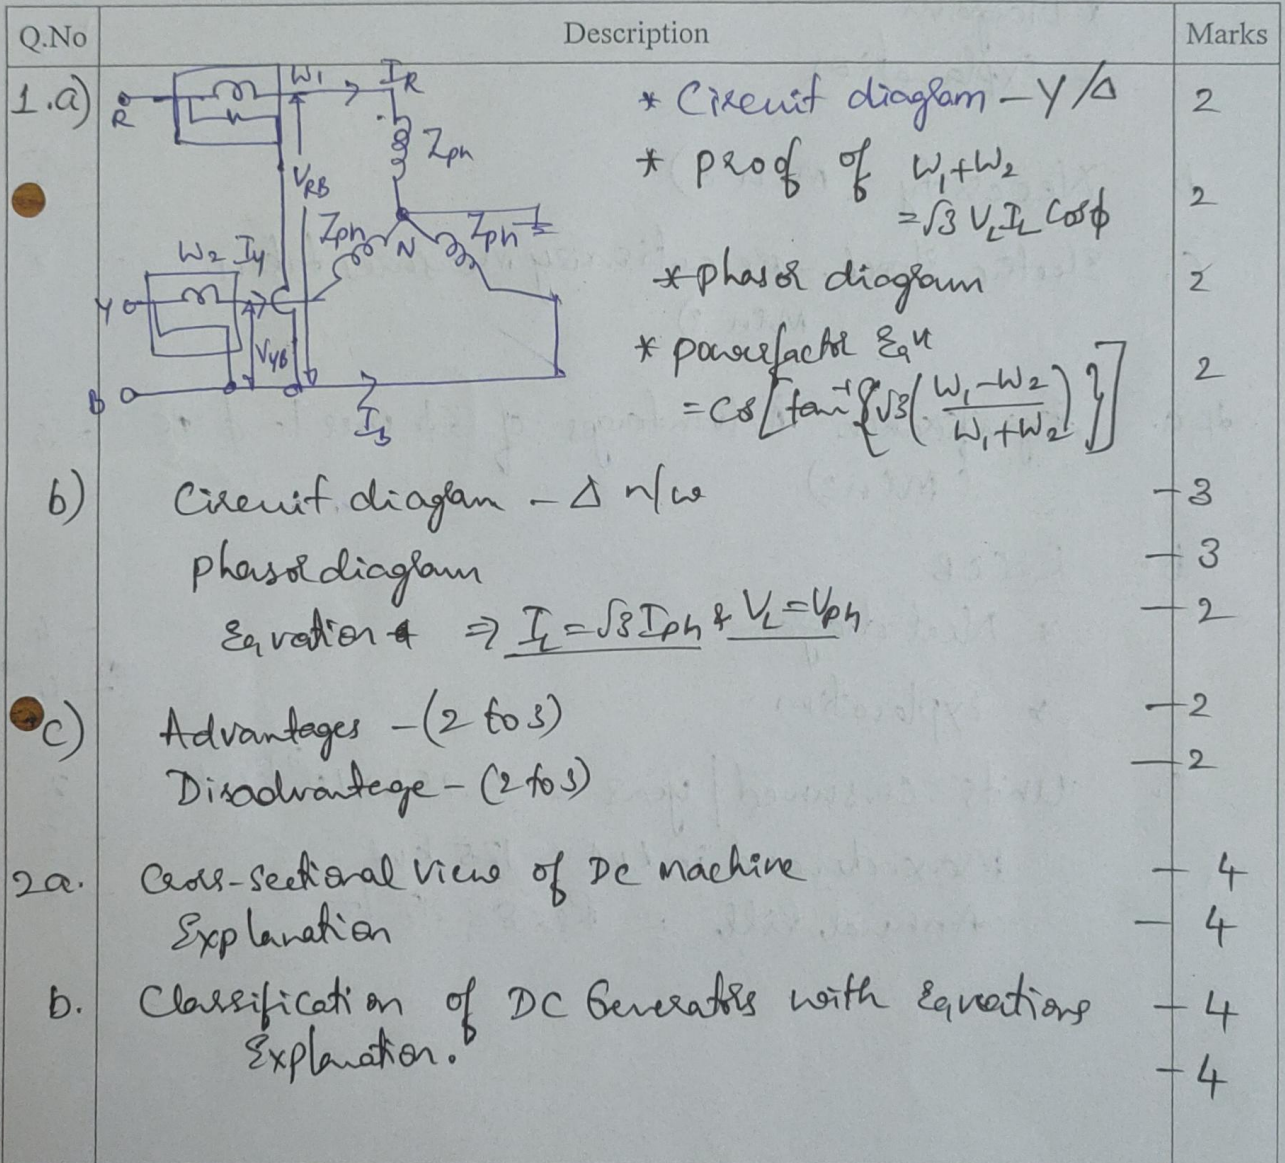 Q.No Description Marks
1.a) R W1 IR * Circuit diagram - Y/Δ 2
Zph
VRB
* proof of W1+W2 = √3 VL IL Cosϕ 2
W2 Iy Zph N Zph
Y * phasor diagram 2
VYB
* powerfactor Eqn 2
= Cos[tan⁻¹{√3(W1-W2/W1+W2)}]
B IB
b) Circuit diagram - Δ n/w - 3
phasor diagram - 3
Equation ⇒ IL = √3 Iph & VL = Vph - 2
c) Advantages - (2 to 3) - 2
Disadvantage - (2 to 3) - 2
2a. Cross-sectional view of DC machine - 4
Explanation - 4
b. Classification of DC Generators with Equations - 4
Explanation. - 4